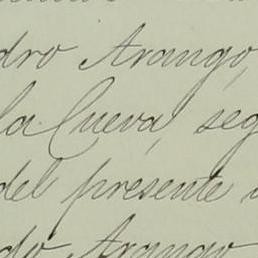 dro Arango,
la Cueva, seg
del presente
do Arango